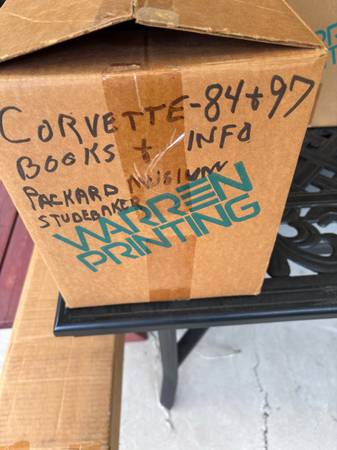 CORVETTE-84+97
BOOKS + INFO
PACKARD MUSIUM
STUDEBAKER
WARREN
PRINTING